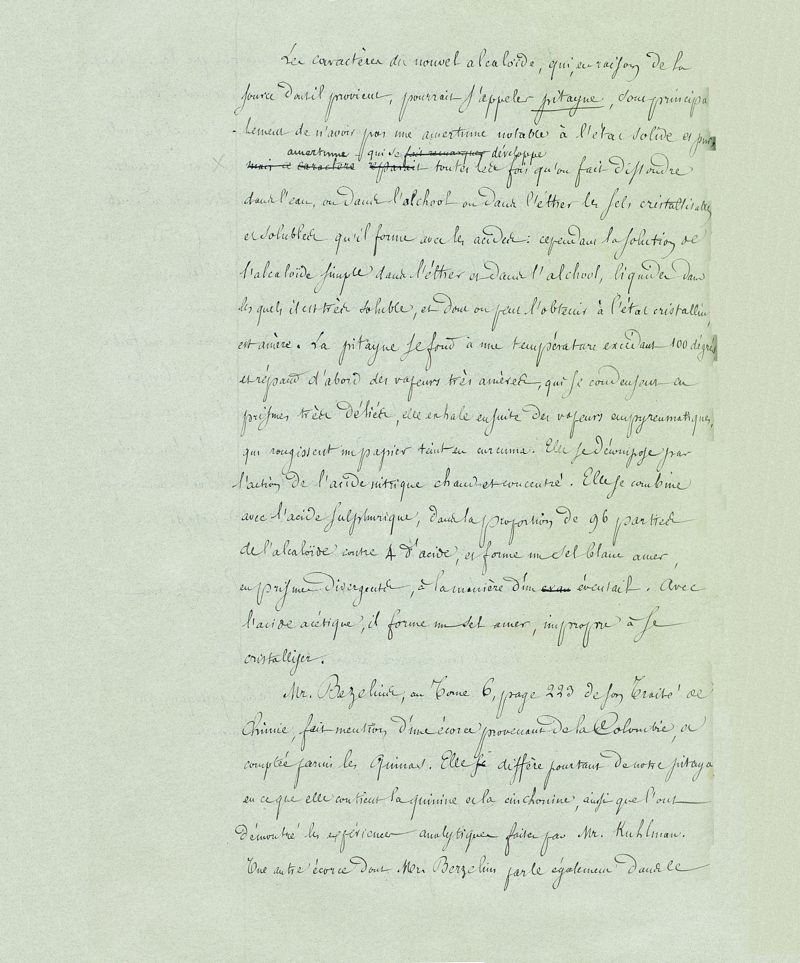 Les caractères du nouvel alcaloïde, qui, en raison de la
source dont il provient, pourrait s'appeler pitayne, sont principa
-lement de n'avoir pas une amertume notable à l'état solide et pur,
amertume qui se fait remarquer développe
mais ce caractère toutes les fois qu'on fait dissoudre
dans l'eau, ou dans l'alchool ou dans l'ether les sels cristallisables
et solubles qu'il forme avec les acides : cependant la solution de
l'alcaloïde simple dans l'éther et dans l'alchool, liquides dans
lesquels il est très soluble, et dont on peut l'obtenir à l'état cristallin,
est amère. La pitayne se fond à une température excédant 100 degrés
et répand d'abord des vapeurs très amères, qui se condensent en
prismes très déliés, elle exhale ensuite des vapeurs empyreumatiques,
qui rougissent un papier teint en curcuma. Elle se décompose par
l'action de l'acide nitrique chaud et concentré. Elle se combine
avec l'acide sulphurique, dans la proportion de 96 parties
de l'alcaloïde contre 4 d'acide, et forme un sel blanc amer,
en prismes divergents, à la manière d'un éventail. Avec
l'acide acétique, il forme un sel amer, impropre à se
cristalliser.
Mr. Bezelius, au Tome 6, page 223 de son Traité de
Chimie, fait mention d'une écorce provenant de la Colombie, et
comptée parmi les Quinas. Elle diffère pourtant de notre pitaya
en ce que elle contient la quinine et la cinchonine, ainsi que l'ont
démontré les expériences analytiques faites par Mr. Kuhlman.
Une autre écorce dont Mr. Berzelius parle également dans le